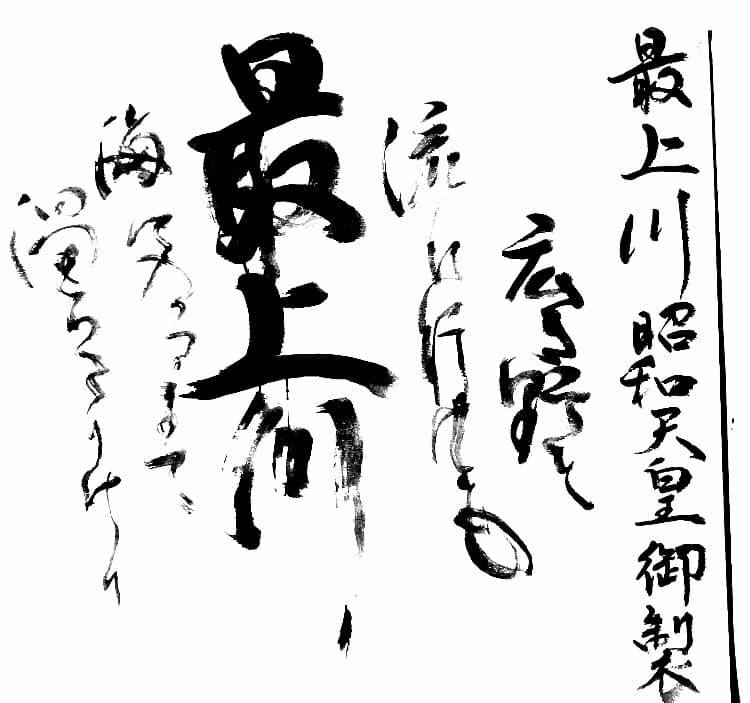 最上川 昭和天皇御製
広き野を
流れ行けども
最上川
海に入るまで
濁らざりけり